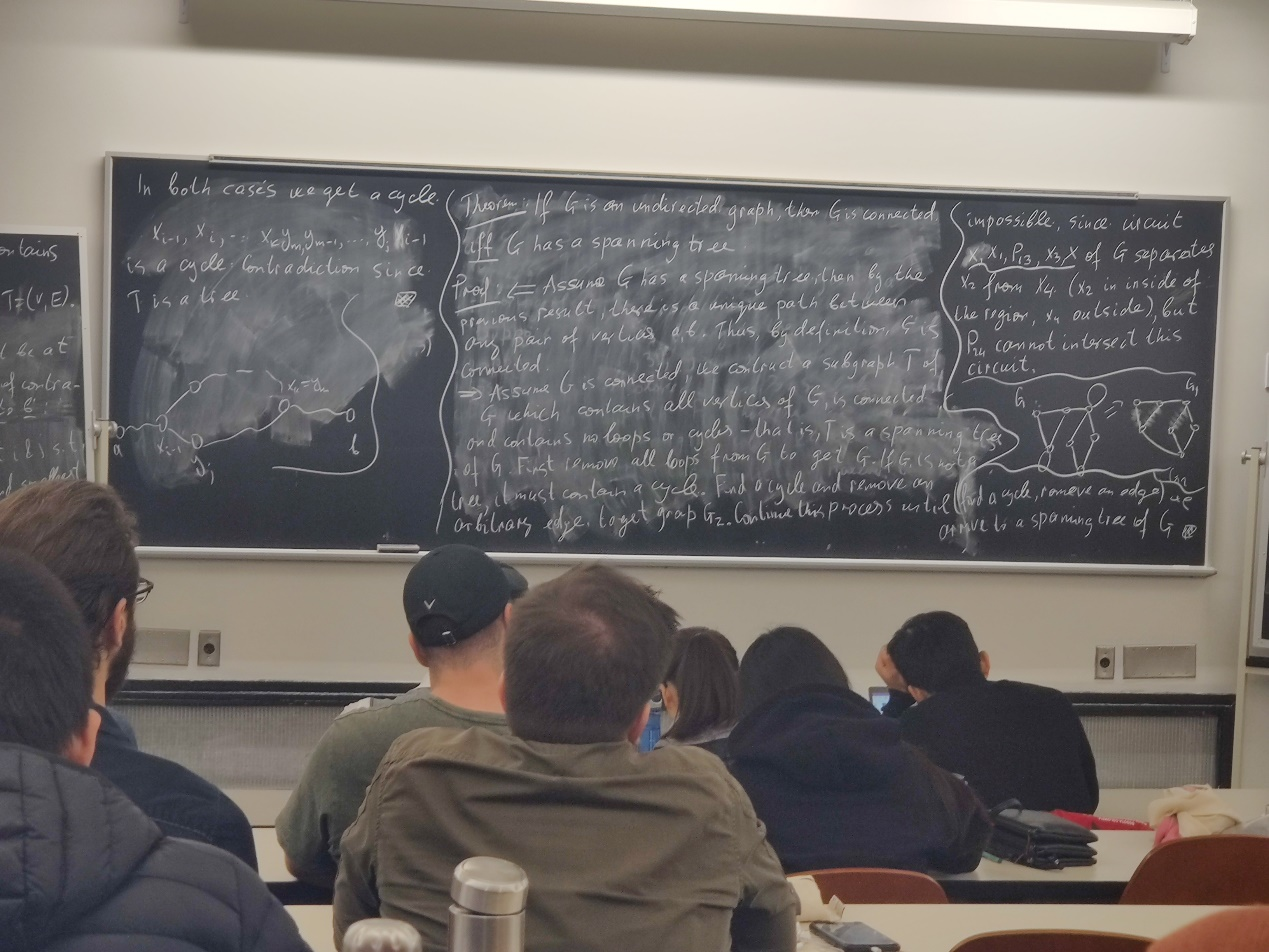 ontains
T=(V,E).
l be at
of contra-
In both cases we get a cycle.
x_{i-1}, x_i, ... x_k y_m, y_{m-1}, ..., y_i x_{i-1}
is a cycle. Contradiction since
T is a tree.
a
x_{i-1}
y_j
b
Theorem: If G is an undirected graph, then G is connected
iff G has a spanning tree
Proof: ⇐ Assume G has a spanning tree, then by the
previous result, there is a unique path between
any pair of vertices a, b. Thus, by definition, G is
connected.
⇒ Assume G is connected, we contruct a subgraph T of
G which contains all vertices of G, is connected
and contains no loops or cycles - that is, T is a spanning tree
of G. First remove all loops from G to get G_1. If G_1 is not a
tree, it must contain a cycle. Find a cycle and remove an
arbitrary edge, to get grap G_2. Continue this process until
impossible, since circuit
x, x_1, P_{13}, x_3, x of G separates
x_2 from x_4 (x_2 in inside of
the region, x_4 outside), but
P_{24} cannot intersect this
circuit.
G ⇒ G_1
(find a cycle, remove an edge) we
arrive to a spanning tree of G